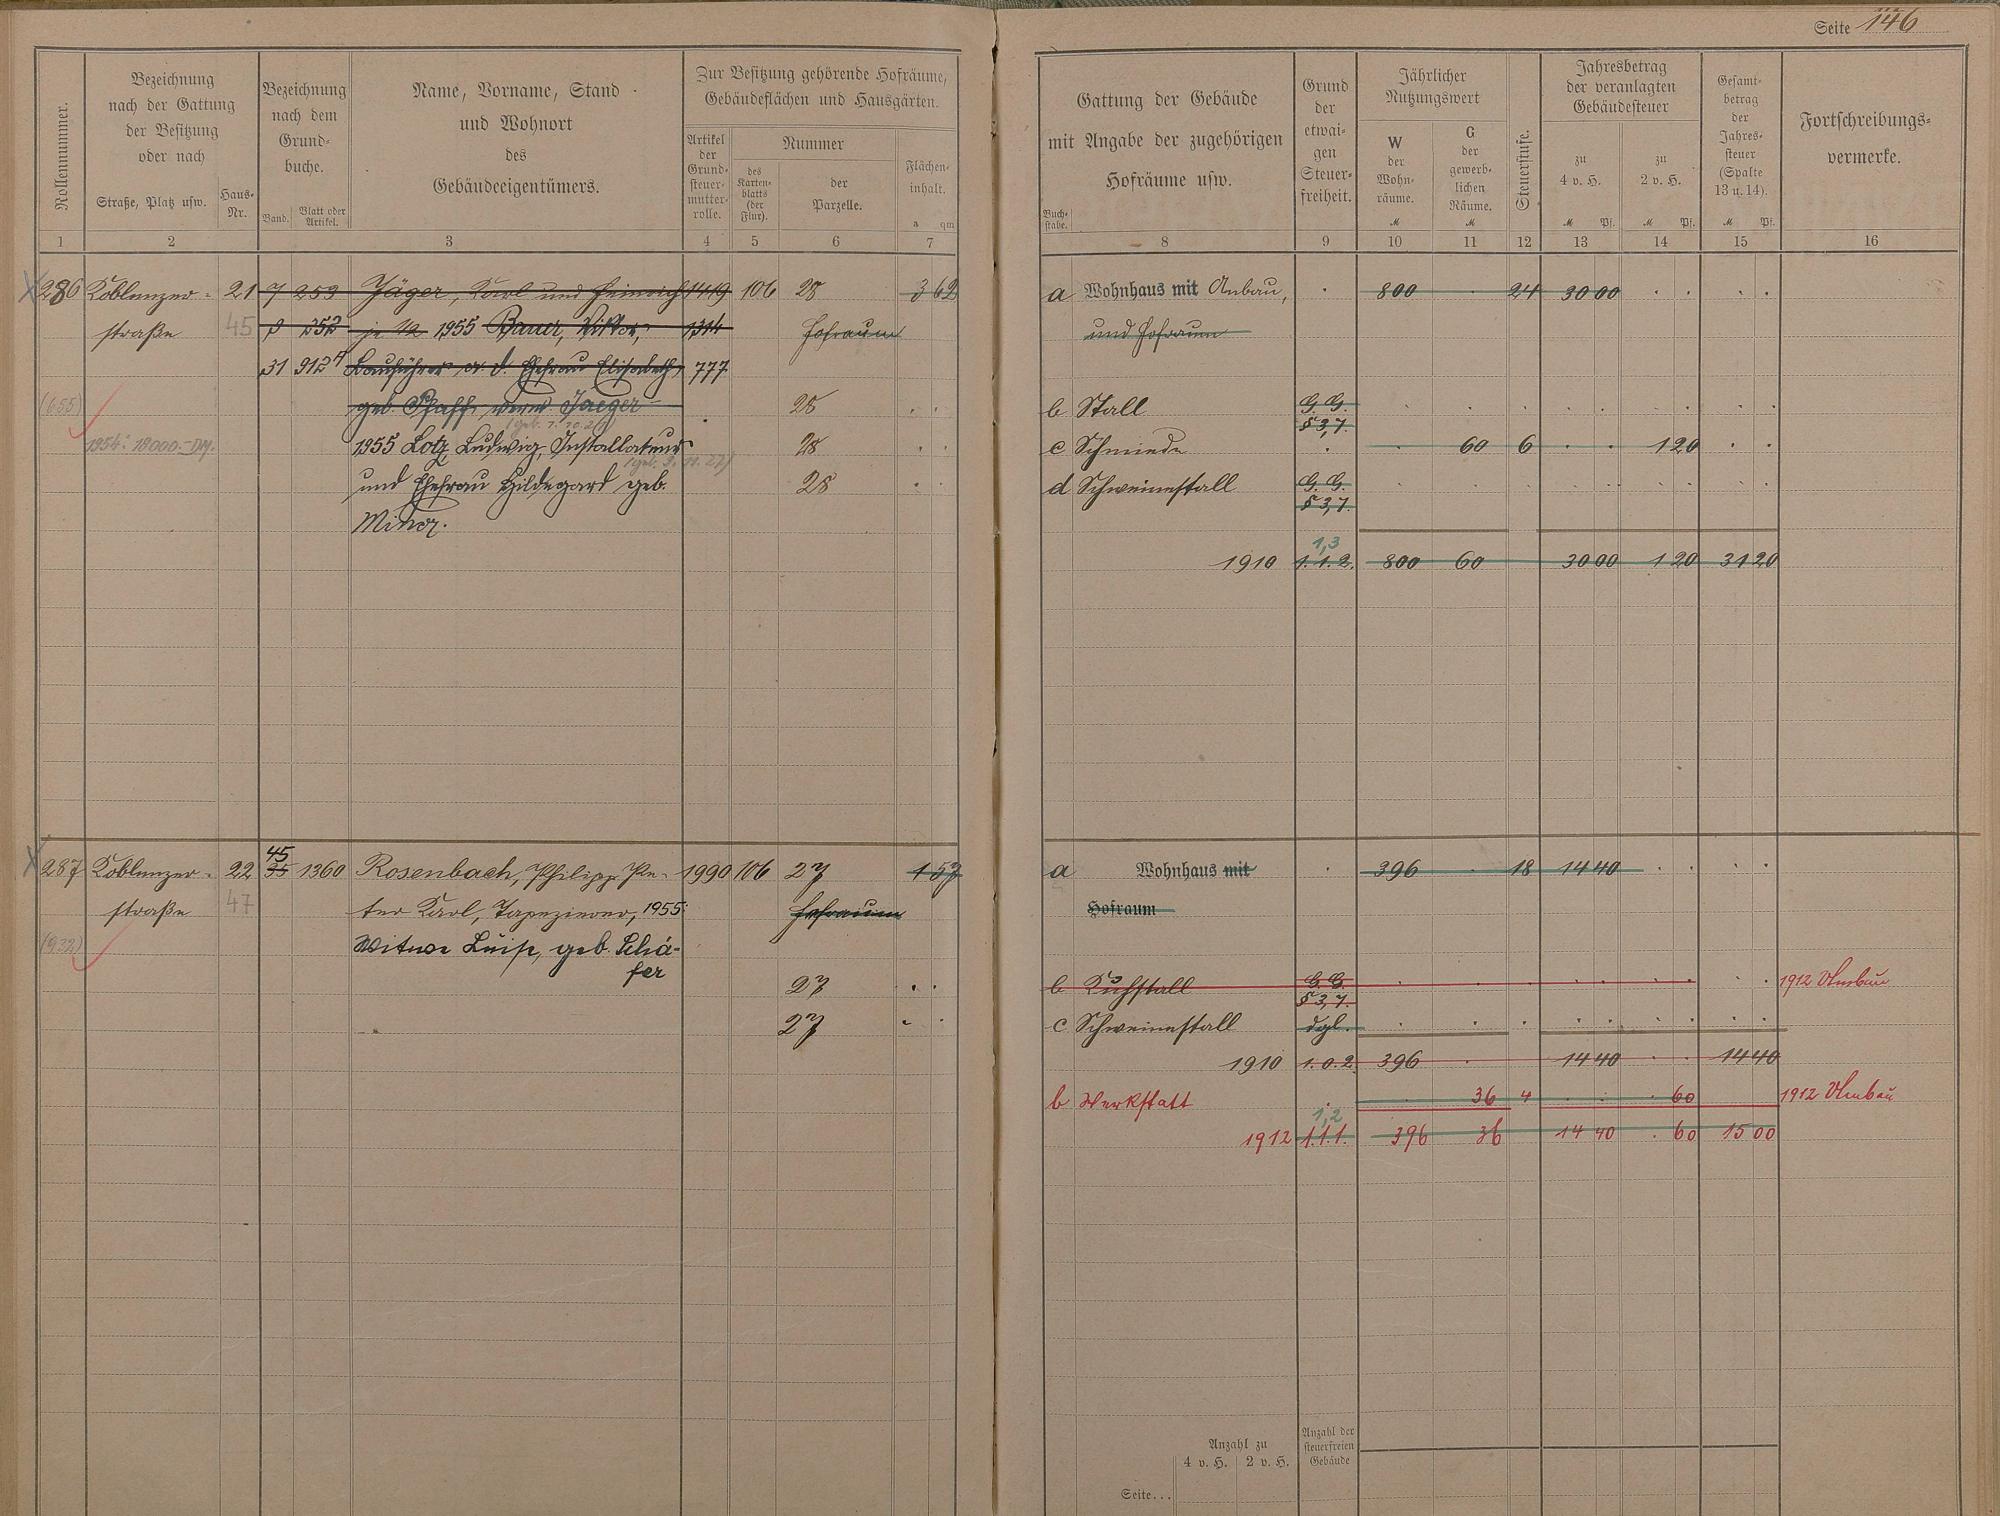 Seite 146
Rollennummer.
Bezeichnung
nach der Gattung
der Besitzung
oder nach
Straße, Platz usw.
Haus-
Nr.
Bezeichnung
nach dem
Grund-
buche.
Band.
Blatt oder
Artikel.
Name, Vorname, Stand
und Wohnort
des
Gebäudeeigentümers.
Zur Besitzung gehörende Hofräume,
Gebäudeflächen und Hausgärten.
Artikel
der
Grund-
steuer-
mutter-
rolle.
Nummer
des
Karten-
blatts
(der
Flur).
der
Parzelle.
Flächen-
inhalt.
a qm
Gattung der Gebäude
mit Angabe der zugehörigen
Hofräume usw.
Buch-
stabe.
Grund
der
etwai-
gen
Steuer-
freiheit.
Jährlicher
Nutzungswert
W
der
Wohn-
räume.
M
G
der
gewerb-
lichen
Räume.
M
Steuerstufe.
Jahresbetrag
der veranlagten
Gebäudesteuer
zu
4 v. H.
M Pf.
zu
2 v. H.
M Pf.
Gesamt-
betrag
der
Jahres-
steuer
(Spalte
13 u. 14).
M Pf.
Fortschreibungs-
vermerke.
1 2 3 4 5 6 7 8 9 10 11 12 13 14 15 16
286 Koblenzer- 21 7 253 Jäger, Karl und Heinrich 1419 106 28 3 62 a Wohnhaus mit Anbau, 800 24 30 00
straße 45 352 je 1/2 1955 Bauer, Viktor, 1314 Hofraum und Hofraum
31 912 Bauführer a. d. Ehefrau Elisabeth, 777
(655) geb. Pfaff, verw. Jaeger 28 b Stall G. G.
§ 3,7.
1954: 18000.- DM. 1955 Lotz, Ludwig, Installateur 28 c Schmiede 60 6 1 20
und Ehefrau Hildegard geb. 28 d Schweinestall G. G.
§ 3,7.
Minor.
1,3
1910 1. 1. 2. 800 60 30 00 1 20 31 20
45
287 Koblenzer- 22 35 1360 Rosenbach, Philipp Pe- 1990 106 27 1 57 a Wohnhaus mit 396 18 14 40
straße 47 ter Karl, Tapezierer, 1955: Hofraum Hofraum
(932) Witwe Luise, geb. Schä-
fer
27 b Kuhstall G. G. 1912 Umbau
§ 3,7.
27 c Schweinestall dgl.
1910 1. 0. 2. 396 14 40 14 40
b Werkstatt 36 4 60 1912 Umbau
1,2
1912 1.1.1. 396 36 14 40 60 15 00
Anzahl zu
4 v. H. 2 v. H.
Anzahl der
steuerfreien
Gebäude
Seite...